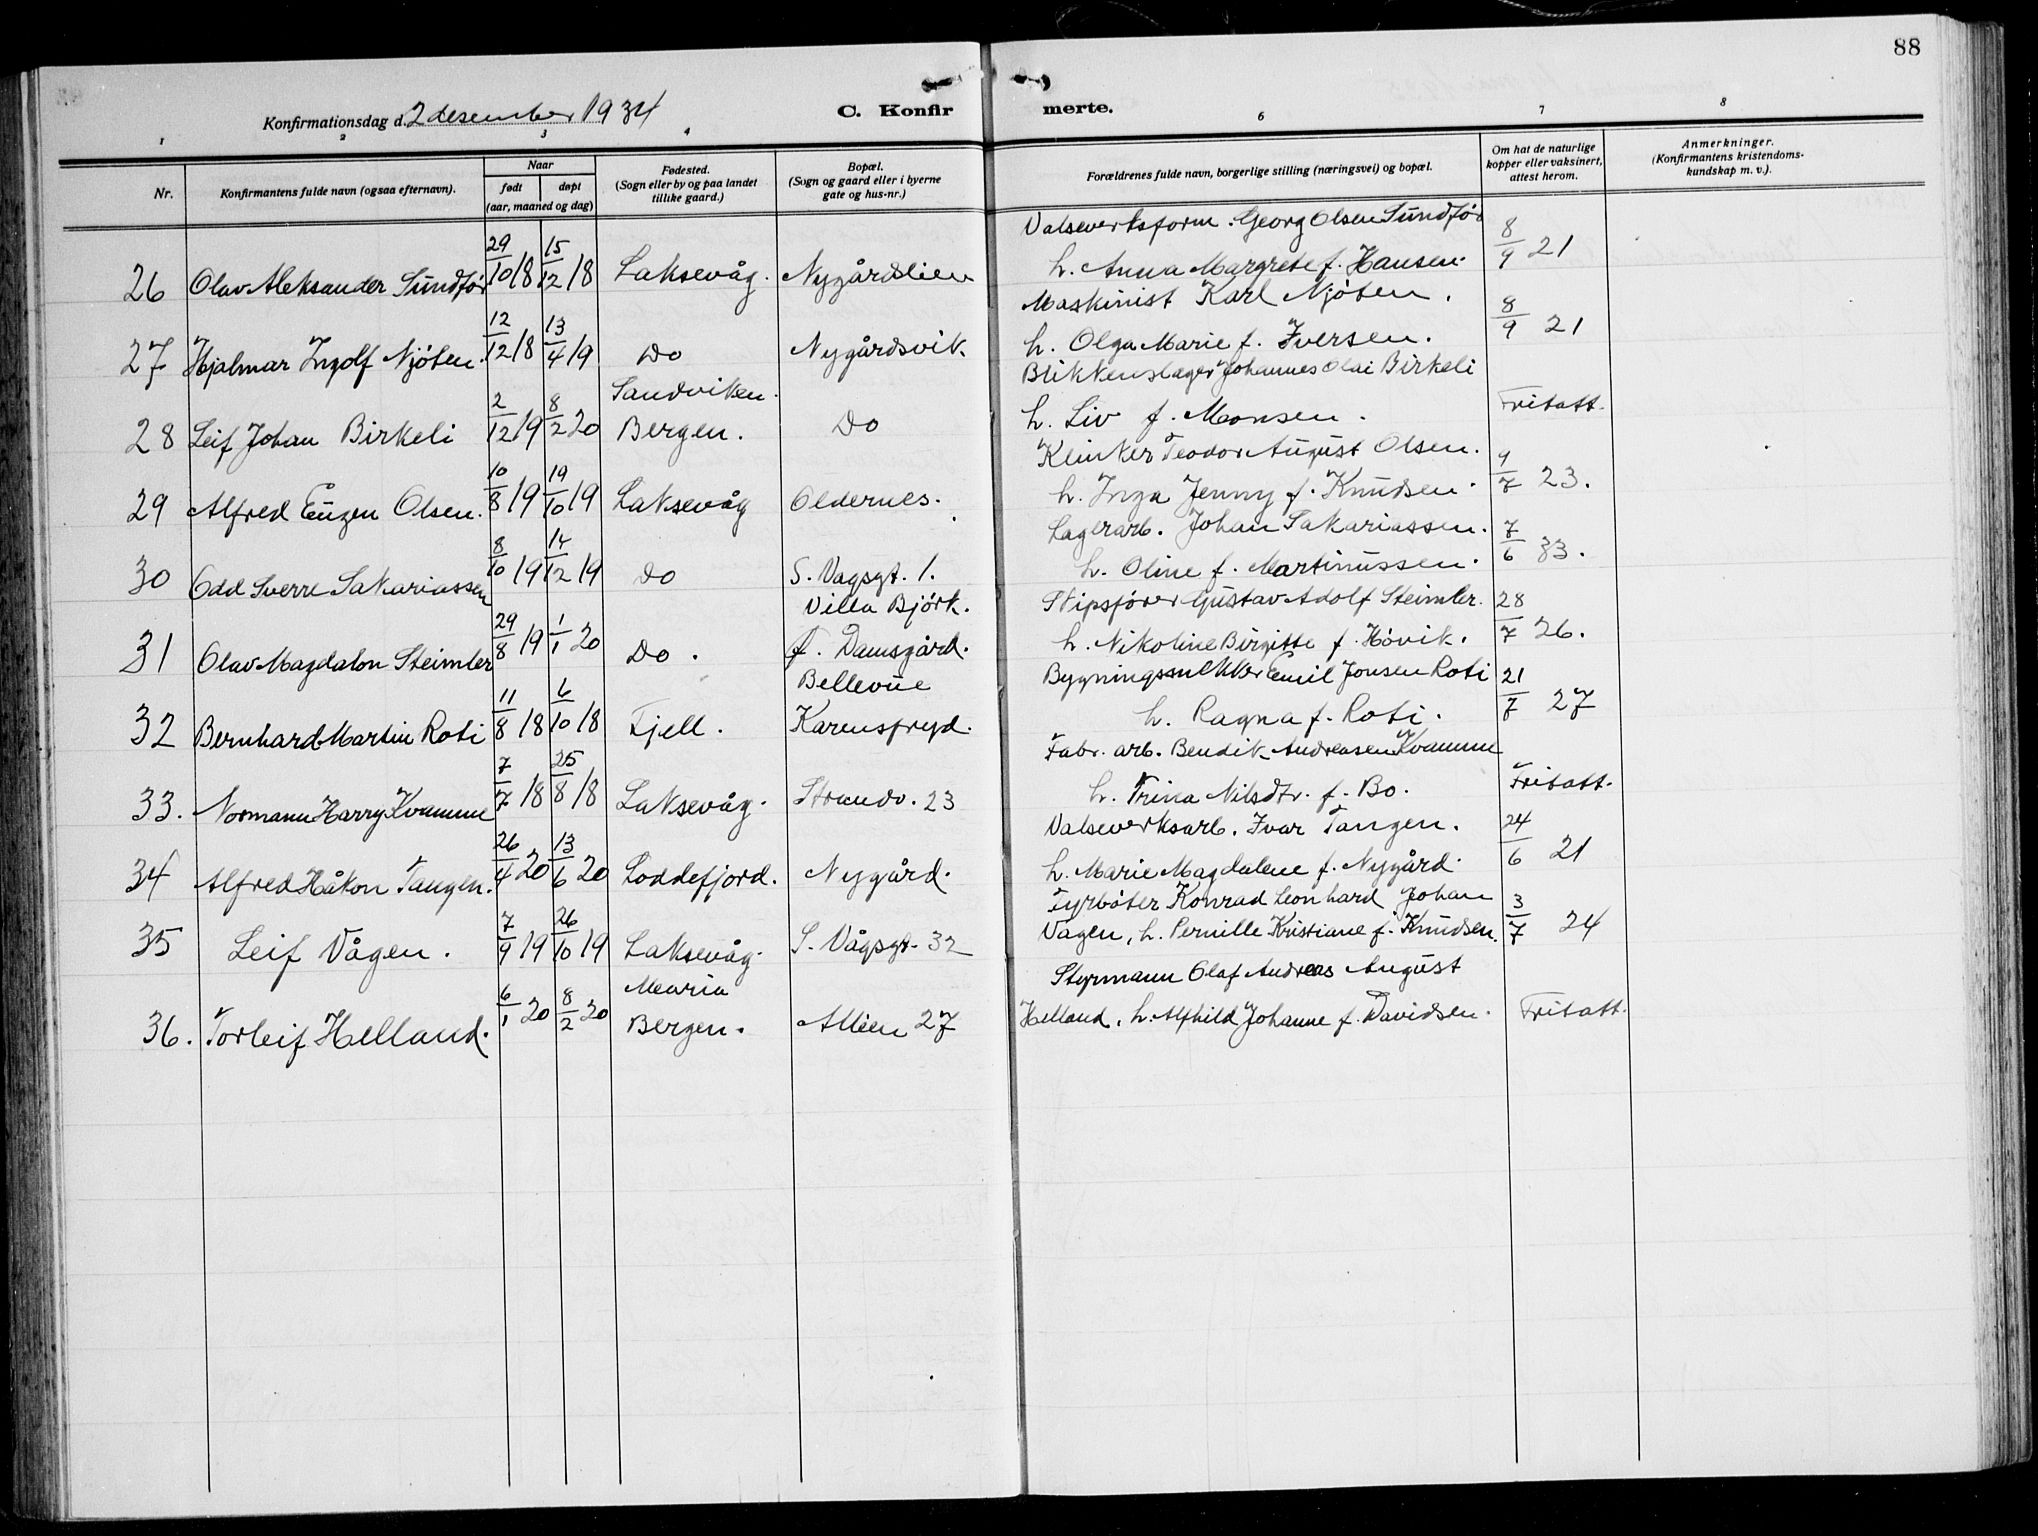 88
Konfirmationsdag d. 2 desember 1934
C. Konfirmerte.
1 2 3 4 6 7 8
Nr.
Konfirmantens fulde navn (ogsaa efternavn).
Naar
født
døpt
(aar, maaned og dag)
Fødested.
(Sogn eller by og paa landet
tillike gaard.)
Bopæl.
(Sogn og gaard eller i byerne
gate og hus-nr.)
Forældrenes fulde navn, borgerlige stilling (næringsvei) og bopæl.
Om hat de naturlige
kopper eller vaksinert,
attest herom.
Anmerkninger.
(Konfirmantens kristendoms-
kundskap m. v.).
26 Olav Aleksander Sundför 29/10 18 15/12 18 Laksevåg. Nygårdslien
Valseverksform. Georg Olsen Sundför
h. Anna Margrete f. Hansen. 8/9 21
27 Hjalmar Ingolf Njöten. 12/12 18 13/4 19 Do Nygårdsvik.
Maskinist Karl Njöten.
h. Olga Marie f. Iversen. 8/9 21
28 Leif Johan Birkeli 2/12 19 8/2 20 Sandviken. Bergen. Do
Blikkenslager Johannes Olai Birkeli
h. Liv f. Monsen. Fritatt.
29 Alfred Eugen Olsen. 10/8 19 19/10 19 Laksevåg Oldernes.
Klinker Teodor August Olsen.
h. Inga Jenny f. Knudsen. 4/7 23.
30 Odd Sverre Sakariassen 8/10 19 14/12 19 Do S. Vagsgt. 1.
Lagerarb. Johan Sakariassen.
h. Oline f. Martinussen. 7/6 33.
31 Olav Magdalon Steimler 29/8 19 1/1 20 Do. Villa Björk. f. Damsgård.
Skipsförer Gustav Adolf Steimler.
h. Nikoline Birgitte f. Hövik. 28/7 26.
32 Bernhard Martin Roti 11/8 18 6/10 18 Fjell. Bellevue Karensfryd.
Bygningssnekker Emil Jonsen Roti
h. Ragna f. Roti. 21/7 27
33. Normann Harry Kvamme 7/7 18 25/8 18 Laksevåg. Strandv. 23
Fabr. arb. Bendik Andreasen Kvamme
h. Trina Nilsdtr. f. Bo. Fritatt.
34 Alfred Håkon Tangen. 26/4 20 13/6 20 Loddefjord. Nygård.
Valseverksarb. Ivar Tangen.
h. Marie Magdalene f. Nygård. 24/6 21
35 Leif Vågen. 7/9 19 26/10 19 Laksevåg. S. Vågsgt. 32
Fyrböter Konrad Leonhard Johan
Vagen, h. Pernille Kristiane f. Knudsen. 3/7 24
36. Torleif Helland. 6/1 20 8/2 20 Maria Bergen. Alleen 27
Styrmann Olaf Andreas August
Helland, h. Alfhild Johanne f. Davidsen. Fritatt.